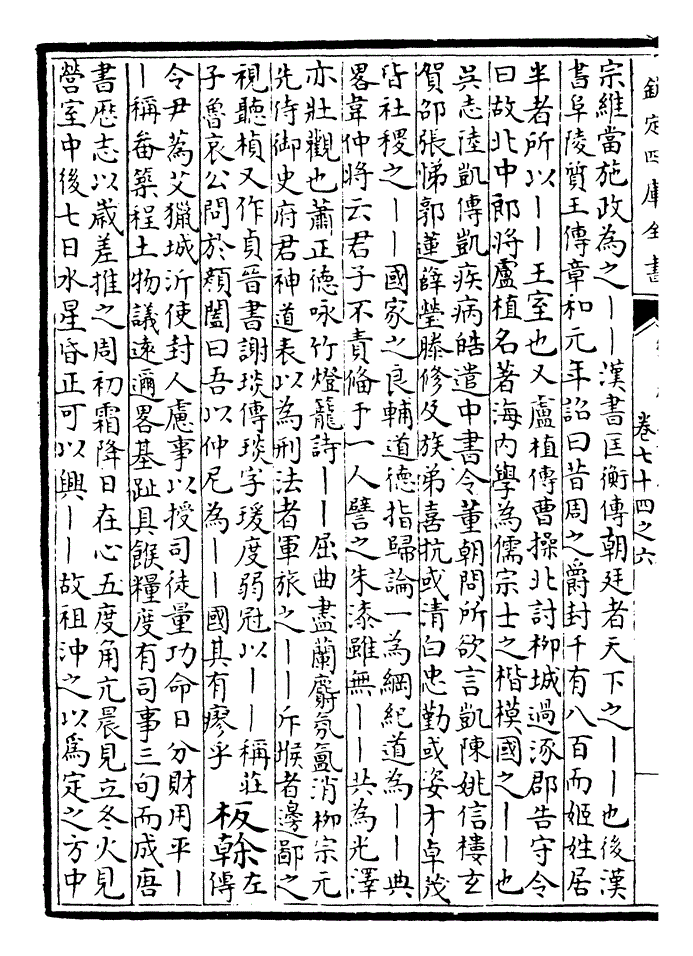 欽定四庫全書
卷七十四之六
宗維當施政為之——漢書匡衡傳朝廷者天下之——也後漢
書阜陵質王傳章和元年詔曰昔周之爵封千有八百而姬姓居
半者所以——王室也又盧植傳曹操北討柳城過涿郡告守令
曰故北中郎將盧植名著海内學為儒宗士之楷模國之——也
吳志陸凱傳凱疾病皓遣中書令董朝問所欲言凱陳姚信樓玄
賀邵張悌郭逴薛瑩滕修及族弟喜抗或清白忠勤或姿才卓茂
皆社稷之——國家之良輔道德指歸論一為綱紀道為——典
畧韋仲將云君子不責備于一人譬之朱漆雖無——共為光澤
亦壯觀也蕭正德咏竹燈籠詩——屈曲盡蘭麝氛氲消柳宗元
先侍御史府君神道表以為刑法者軍旅之——斥堠者邊鄙之
視聽楨又作貞晉書謝琰傳琰字瑗度弱冠以——稱莊
子魯哀公問於顔闔曰吾以仲尼為——國其有瘳乎
板榦
左
傳
令尹蒍艾獵城沂使封人慮事以授司徒量功命日分財用平—
—稱畚築程土物議遠邇畧基趾具餱糧度有司事三旬而成唐
書厯志以歲差推之周初霜降日在心五度角亢晨見立冬火見
營室中後七日水星昏正可以興——故祖沖之以為定之方中